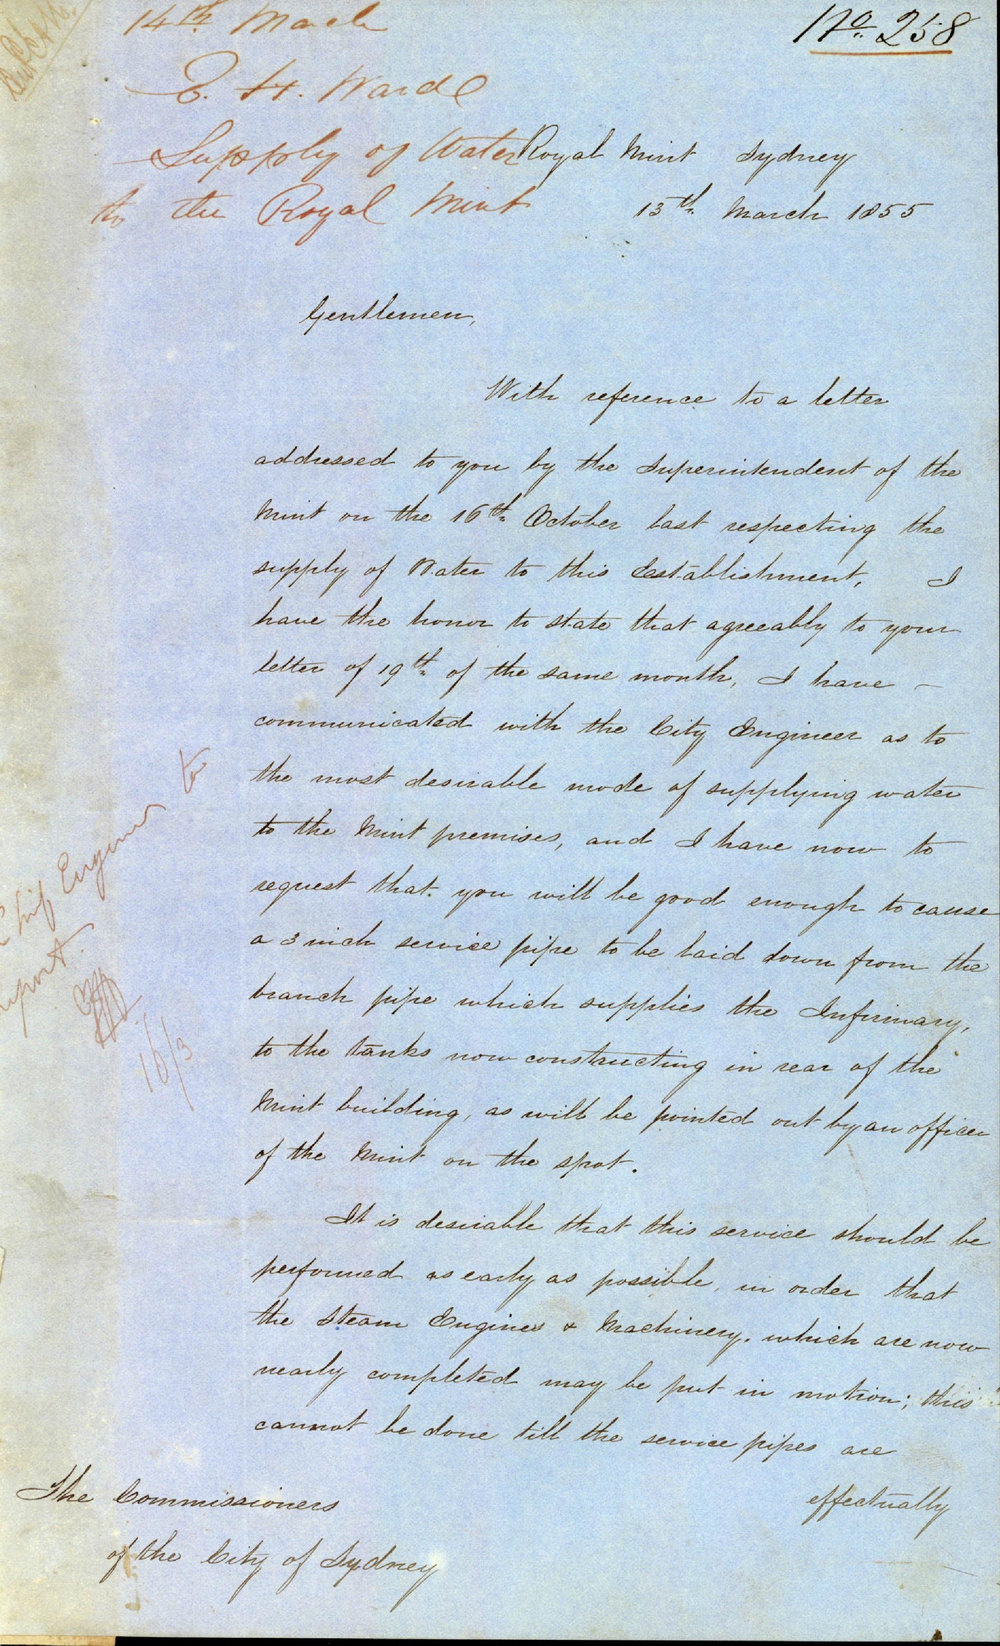 14th. March
No. 258
E. W. Ward
Supply of Water
to the Royal Mint
Royal Mint Sydney
13th. March 1855
Gentlemen,
With reference to a letter
addressed to you by the Superintendent of the
Mint on the 16th. October last respecting the
supply of Water to this Establishment, I
have the honor to state that agreeably to your
letter of 19th. of the same month, I have –
communicated with the City Engineer as to
the most desirable mode of supplying water
to the Mint premises, and I have now to
request that you will be good enough to cause
a 3 inch service pipe to be laid down from the
branch pipe which supplies the Infirmary,
to the tanks now constructing in rear of the
Mint building, as will be pointed out by an officer
of the Mint on the spot.
It is desirable that this service should be
performed as early as possible, in order that
the Steam Engines & Machinery, which are now
nearly completed may be put in motion; this
cannot be done till the service pipes are
effectually
The Commissioners
of the City of Sydney
Engineer to
report.
16/3